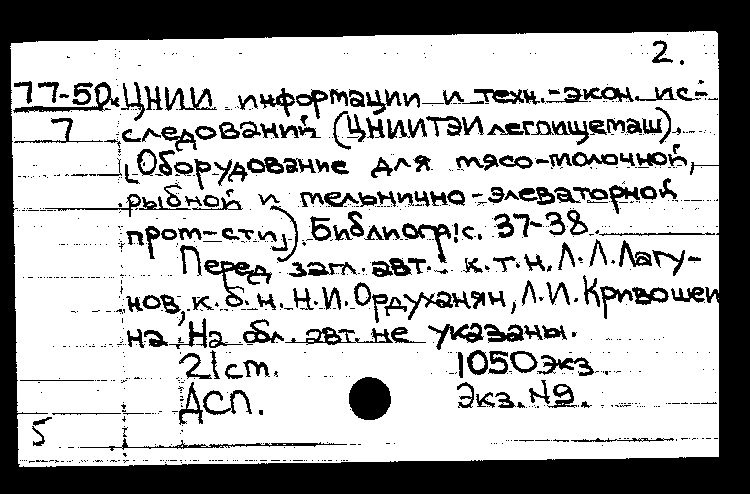 2.
77-50. ЦНИИ информации и техн.-экон. ис-
7 следований (ЦНИИТЭИлегпищемаш).
[Оборудование для мясо-молочной,
рыбной и мельнично-элеваторной
пром-сти]) Библиогр: с. 37-38.
Перед загл. авт.: к.т.н. Л.Л.Лагу-
нов, к.б.н. Н.И.Ордуханян, Л.И.Кривошеи
на. На обл. авт. не указаны.
21см. 1050экз.
ДСП. Экз.N9.
5